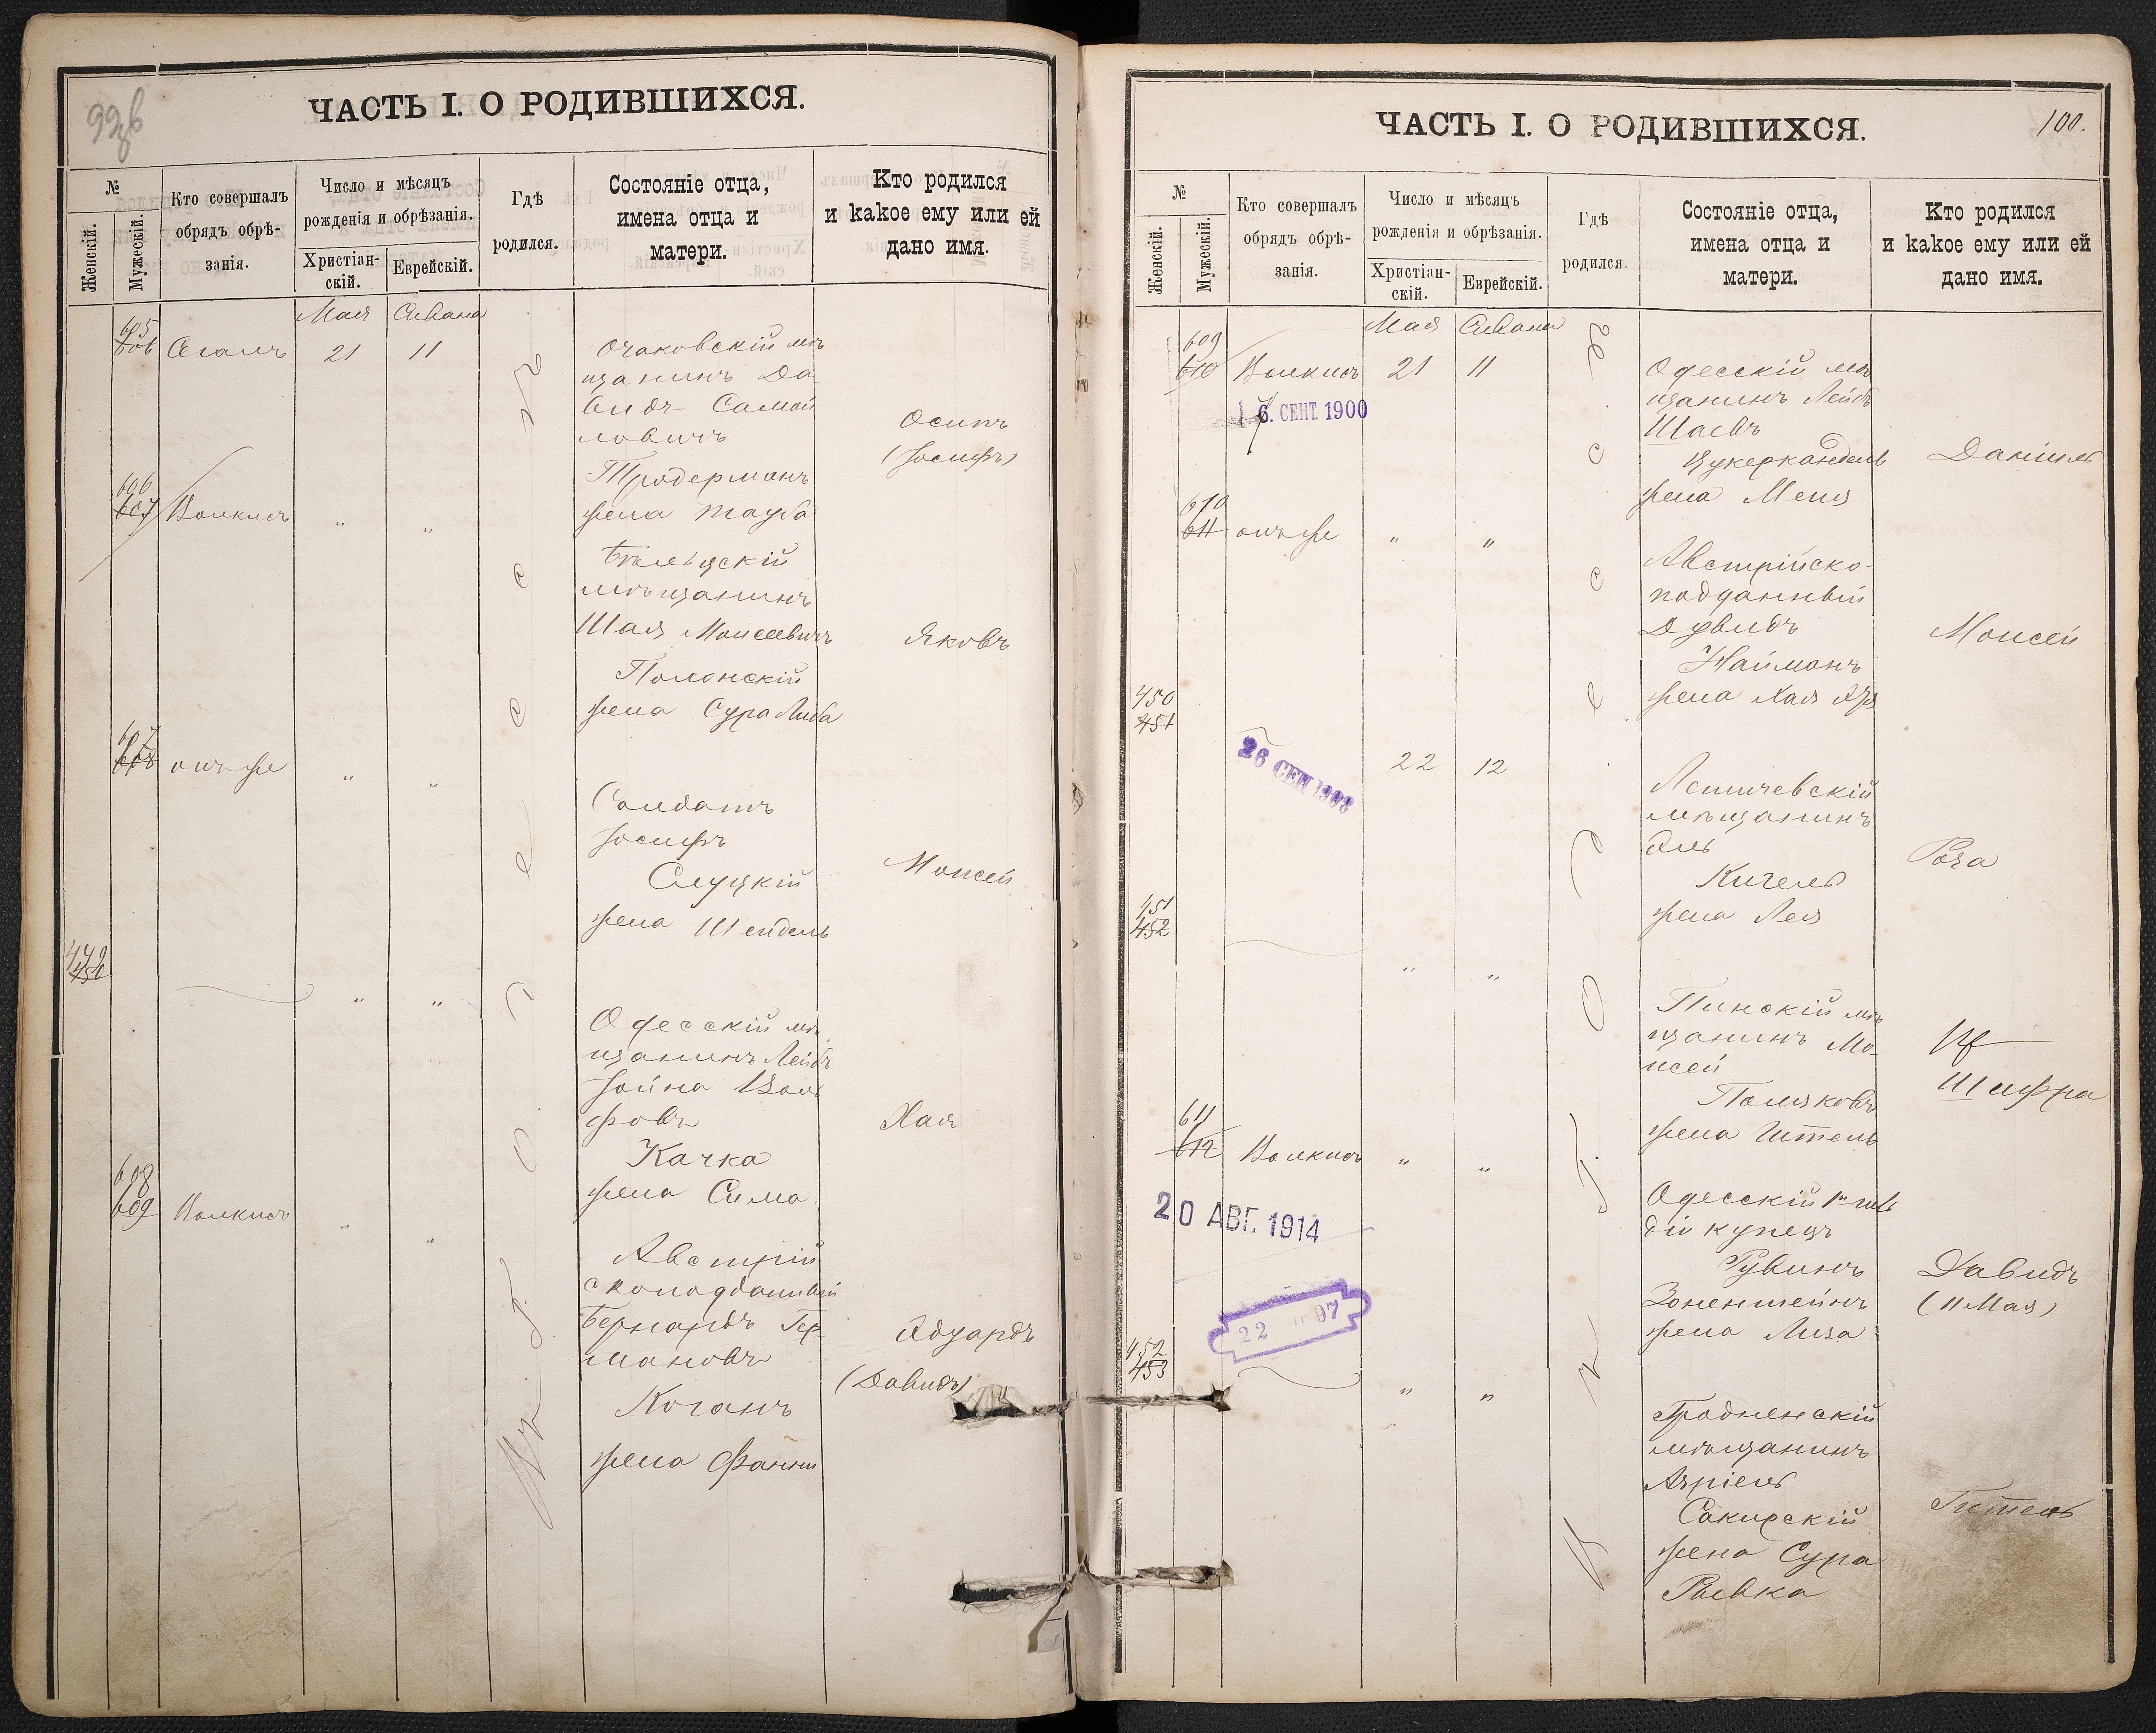 99 об
ЧАСТЬ I. О РОДИВШИХСЯ.
№
Женскій.
Мужескій.
Кто совершалъ
обрядъ обрѣ-
занія.
Число и мѣсяцъ
рожденія и обрѣзанія.
Христіан-
скій.
Еврейскій.
Гдѣ
родился.
Состояніе отца,
имена отца и
матери.
Кто родился
и какое ему или ей
дано имя.
Мая Сивана
605
606 Сегалъ 21 11
Очаковскій мѣ
щанинъ Да
видъ Самой
ловичъ
Тродерманъ
жена Тауба
Осипъ
(Іосифъ)
606
607 Волкисъ " "
Бѣльцскій
мѣщанинъ
Шая Моисеевичъ
Полонскій
жена Сура Либа
Яковъ
607
608 онъ же " "
Солдатъ
Іосифъ
Слуцкій
жена Шейдель
Моисей
449
450 " "
Одесскій мѣ
щанинъ Лейбъ
Іойна Воль
фовъ
Качка
жена Сима
Хая
608
609 Волкисъ " "
Австрій
скоподданный
Бернардъ Гер
мановъ
Коганъ
жена Фанни
Эдуардъ
(Давидъ)
Въ г. Одессѣ
100.
ЧАСТЬ I. О РОДИВШИХСЯ.
№
Женскій.
Мужескій.
Кто совершалъ
обрядъ обрѣ-
занія.
Число и мѣсяцъ
рожденія и обрѣзанія.
Христіан-
скій.
Еврейскій.
Гдѣ
родился.
Состояніе отца,
имена отца и
матери.
Кто родился
и какое ему или ей
дано имя.
Мая Сивана
609
610 Волкисъ 21 11
6. СЕНТ 1900
Одесскій мѣ
щанинъ Лейбъ
Шаевъ
Цукеркандель
жена Меня
Даніилъ
610
611 онъ же " "
Австрійско-
подданный
Дувидъ
Найманъ
жена Хая
Моисей
450
451 22 12
26 СЕН 1908
Летичевскій
мѣщанинъ
Эль
Кигель
жена Лея
Роза
451
452 " "
Пинскій мѣ
щанинъ Мо-
исей
Поляковъ
жена Итель
Шифра
611
612 Волкисъ " "
20 АВГ. 1914
22 97
Одесскій 1й гиль
діи купецъ
Рувинъ
Зоненштейнъ
жена Лиза
Давидъ
(11 Мая)
452
453 " "
Гродненскій
мѣщанинъ
Азріель
Сакирскій
жена Сура
Рывка
Гитель
Въ г. Одессѣ